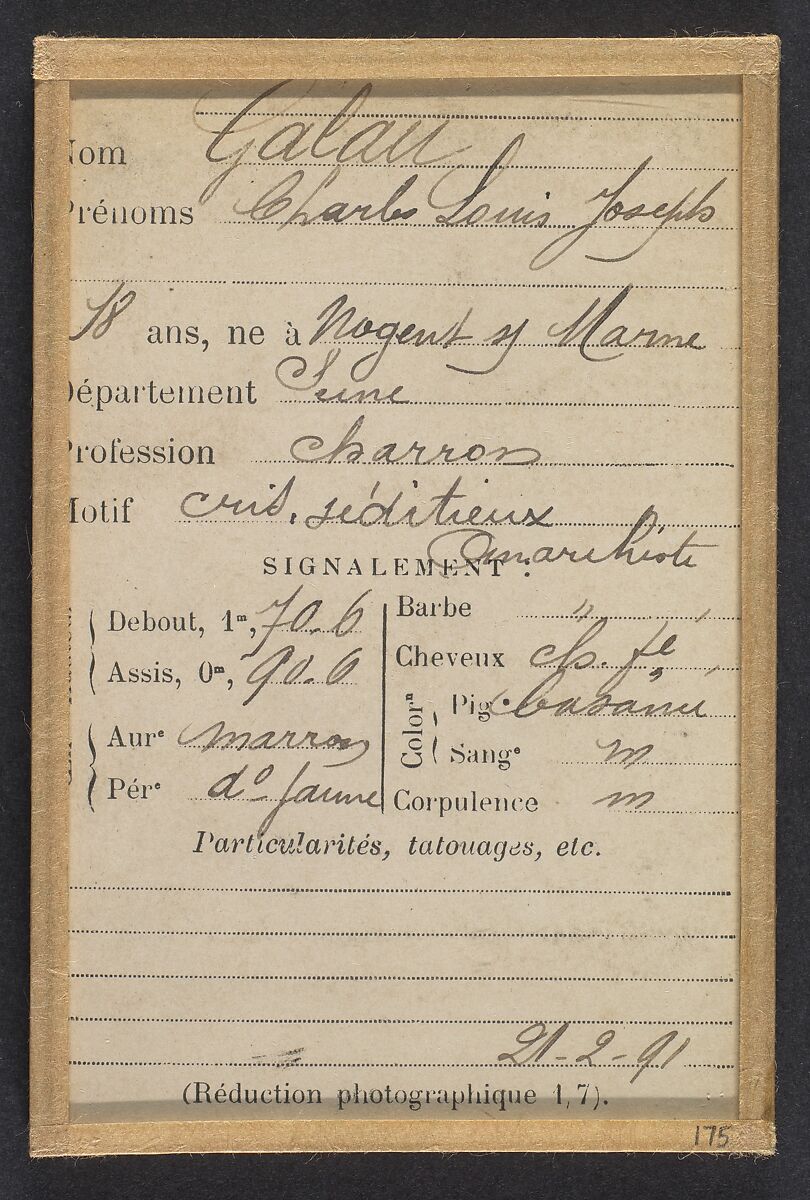 Nom Galau
Prénoms Charles Louis Joseph
18 ans, né à Nogent s/ Marne
Département Seine
Profession charron
Motif cris. séditieux
Anarchiste
SIGNALEMENT.
Debout, 1m, 70.6
Assis, 0m, 90.6
Aure marron
Pére do jaune
Barbe "
Cheveux ch. fé
Colorn
Pige basané
Sange m
Corpulence m
Particularités, tatouages, etc.
21-2-91
(Réduction photographique 1,7).
175